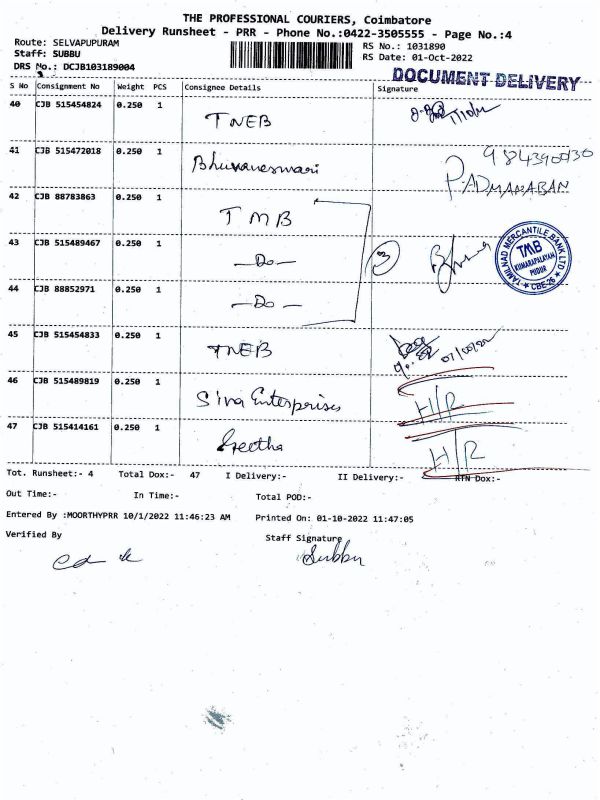 THE PROFESSIONAL COURIERS, Coimbatore
Delivery Runsheet - PRR - Phone No.:0422-3505555 - Page No.:4
Route: SELVAPUPURAM
RS No.: 1031890
Staff: SUBBU
RS Date: 01-Oct-2022
DRS No.: DCJB103189004
DOCUMENT DELIVERY
S No Consignment No Weight PCS Consignee Details Signature
40 CJB 515454824 0.250 1 TNEB
41 CJB 515472018 0.250 1 Bhuvaneswari
PADMANABAN
42 CJB 88783863 0.250 1 TMB
43 CJB 515489467 0.250 1 - Do - 3
TAMILNAD MERCANTILE BANK LTD
TMB
KUMARAPALAYAM
PUDUR
CBE-26
44 CJB 88852971 0.250 1 - Do -
45 CJB 515454833 0.250 1 TNEB
46 CJB 515489819 0.250 1 Siva Enterprises H/R
47 CJB 515414161 0.250 1 Geetha H/R
Tot. Runsheet:- 4 Total Dox:- 47 I Delivery:- II Delivery:- RTN Dox:-
Out Time:- In Time:- Total POD:-
Entered By :MOORTHYPRR 10/1/2022 11:46:23 AM Printed On: 01-10-2022 11:47:05
Verified By Staff Signature
Subbu